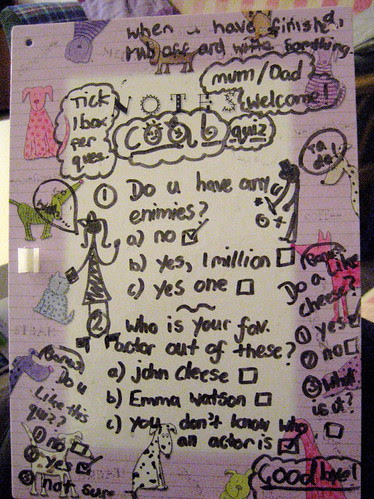 when u have finished,
rub off and write something
mum/Dad
welcome!
Tick
1 box
per
ques.
NOTES
cool quiz
ta
da!
① Do u have any
enimies?
a) no ☑
b) yes, 1 million ☐
c) yes one ☐
② who is your fav.
actor out of these?
a) john cleese ☐
b) Emma watson ☐
c) you don't know who
an actor is ☑
Bonus
Do u
Like this
quiz?
① no ☐
② yes ☑
③ not sure
Bonus
Do u Like
cheese?
① yes
② no ☐
③ what
is it?
Good bye!